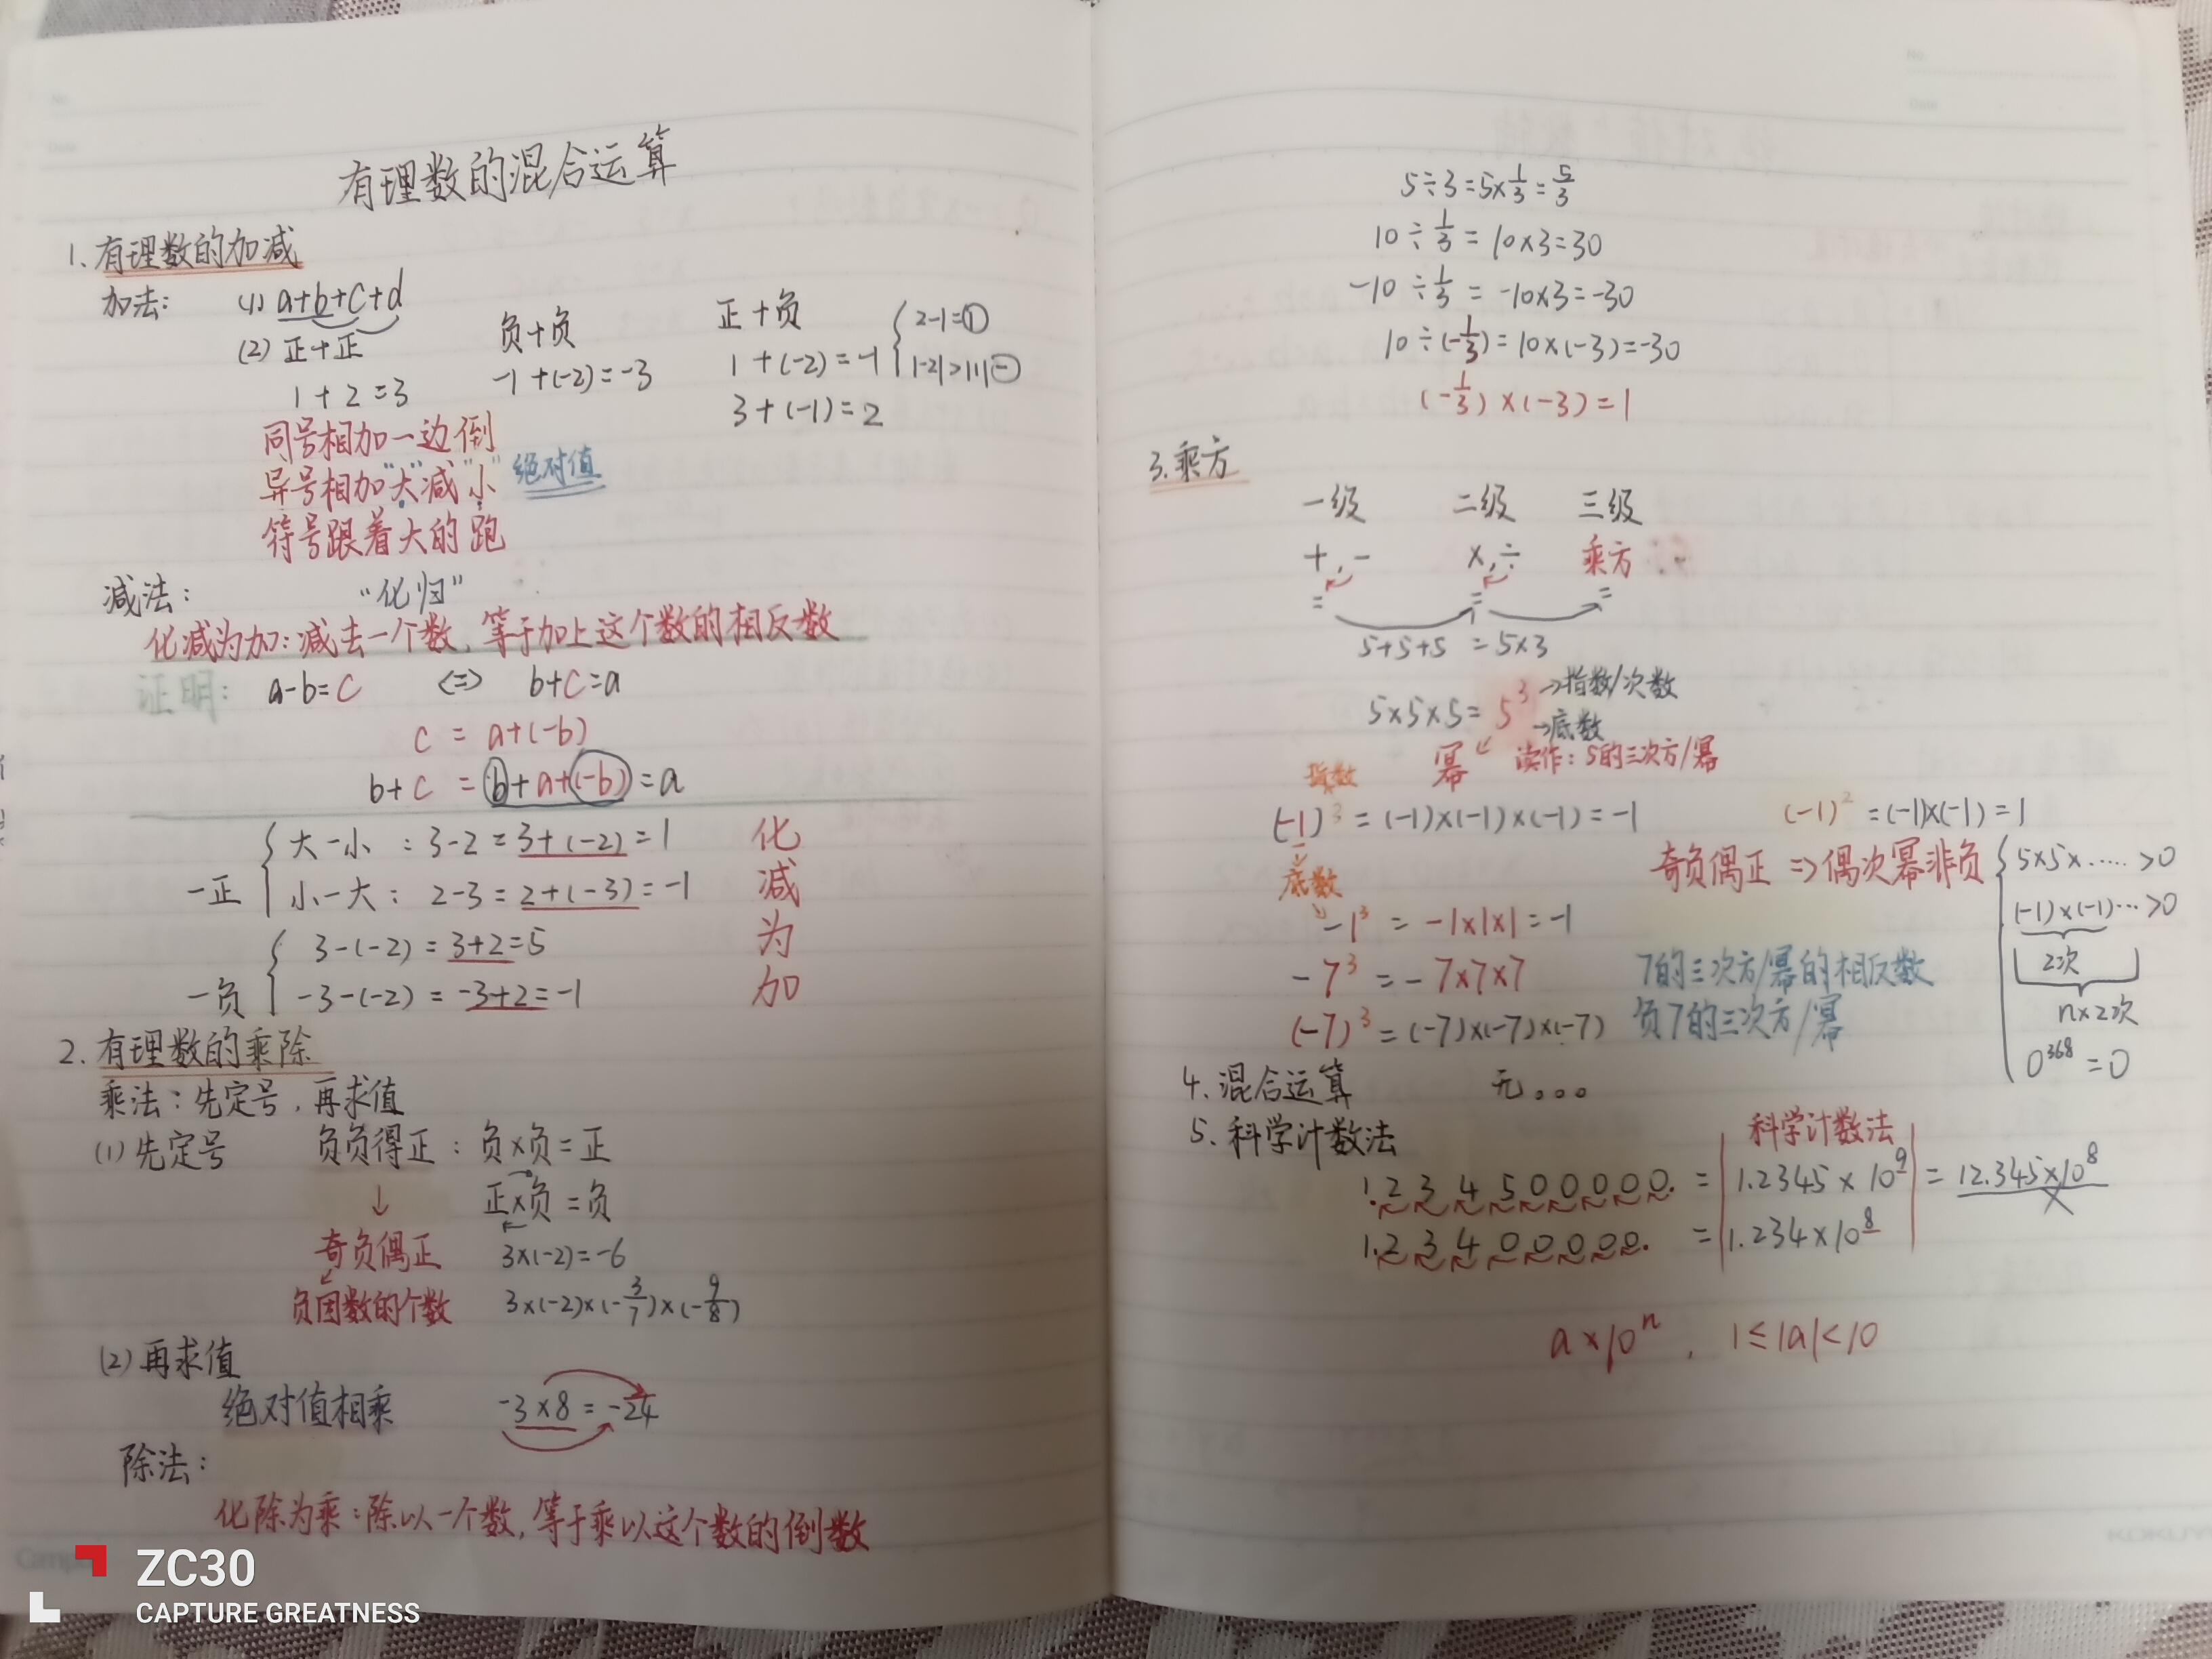 有理数的混合运算
1. 有理数的加减
加法: (1) a+b+c+d
(2) 正+正 负+负 正+负
1+2=3 -1+(-2)=-3 1+(-2)=-1 { 2-1=① |-2|>|1| ⊖
3+(-1)=2
同号相加一边倒
异号相加"大"减"小" 绝对值
符号跟着大的跑
减法: "化归"
化减为加:减去一个数,等于加上这个数的相反数
证明: a-b=c <=> b+c=a
c = a+(-b)
b+c = b+a+(-b) = a
一正 { 大-小: 3-2=3+(-2)=1
小-大: 2-3=2+(-3)=-1
一负 { 3-(-2)=3+2=5
-3-(-2)=-3+2=-1
化减为加
2. 有理数的乘除
乘法:先定号,再求值
(1) 先定号 负负得正:负×负=正
↓ 正×负=负
奇负偶正 3×(-2)=-6
负因数的个数 3×(-2)×(-3/7)×(-9/8)
(2) 再求值
绝对值相乘 -3×8=-24
除法:
化除为乘:除以一个数,等于乘以这个数的倒数
5÷3=5×1/3=5/3
10÷1/3=10×3=30
-10÷1/3=-10×3=-30
10÷(-1/3)=10×(-3)=-30
(-1/3)×(-3)=1
3. 乘方
一级 二级 三级
+,- ×,÷ 乘方
= = =
5+5+5=5×3
5×5×5=5³ →指数/次数
→底数
幂 读作:5的三次方/幂
指数
(-1)³=(-1)×(-1)×(-1)=-1 (-1)²=(-1)×(-1)=1
底数
奇负偶正 => 偶次幂非负 { 5×5×……>0
(-1)×(-1)…>0
2次
n×2次
0³⁶⁸=0
-1³=-1×1×1=-1
-7³=-7×7×7 7的三次方/幂的相反数
(-7)³=(-7)×(-7)×(-7) 负7的三次方/幂
4. 混合运算 无。。。
5. 科学计数法
科学计数法
1.234500000.=1.2345×10⁹=12.345×10⁸ ×
1.23400000.=1.234×10⁸
a×10ⁿ, 1≤|a|<10
Campus
KOKUYO
ZC30
CAPTURE GREATNESS